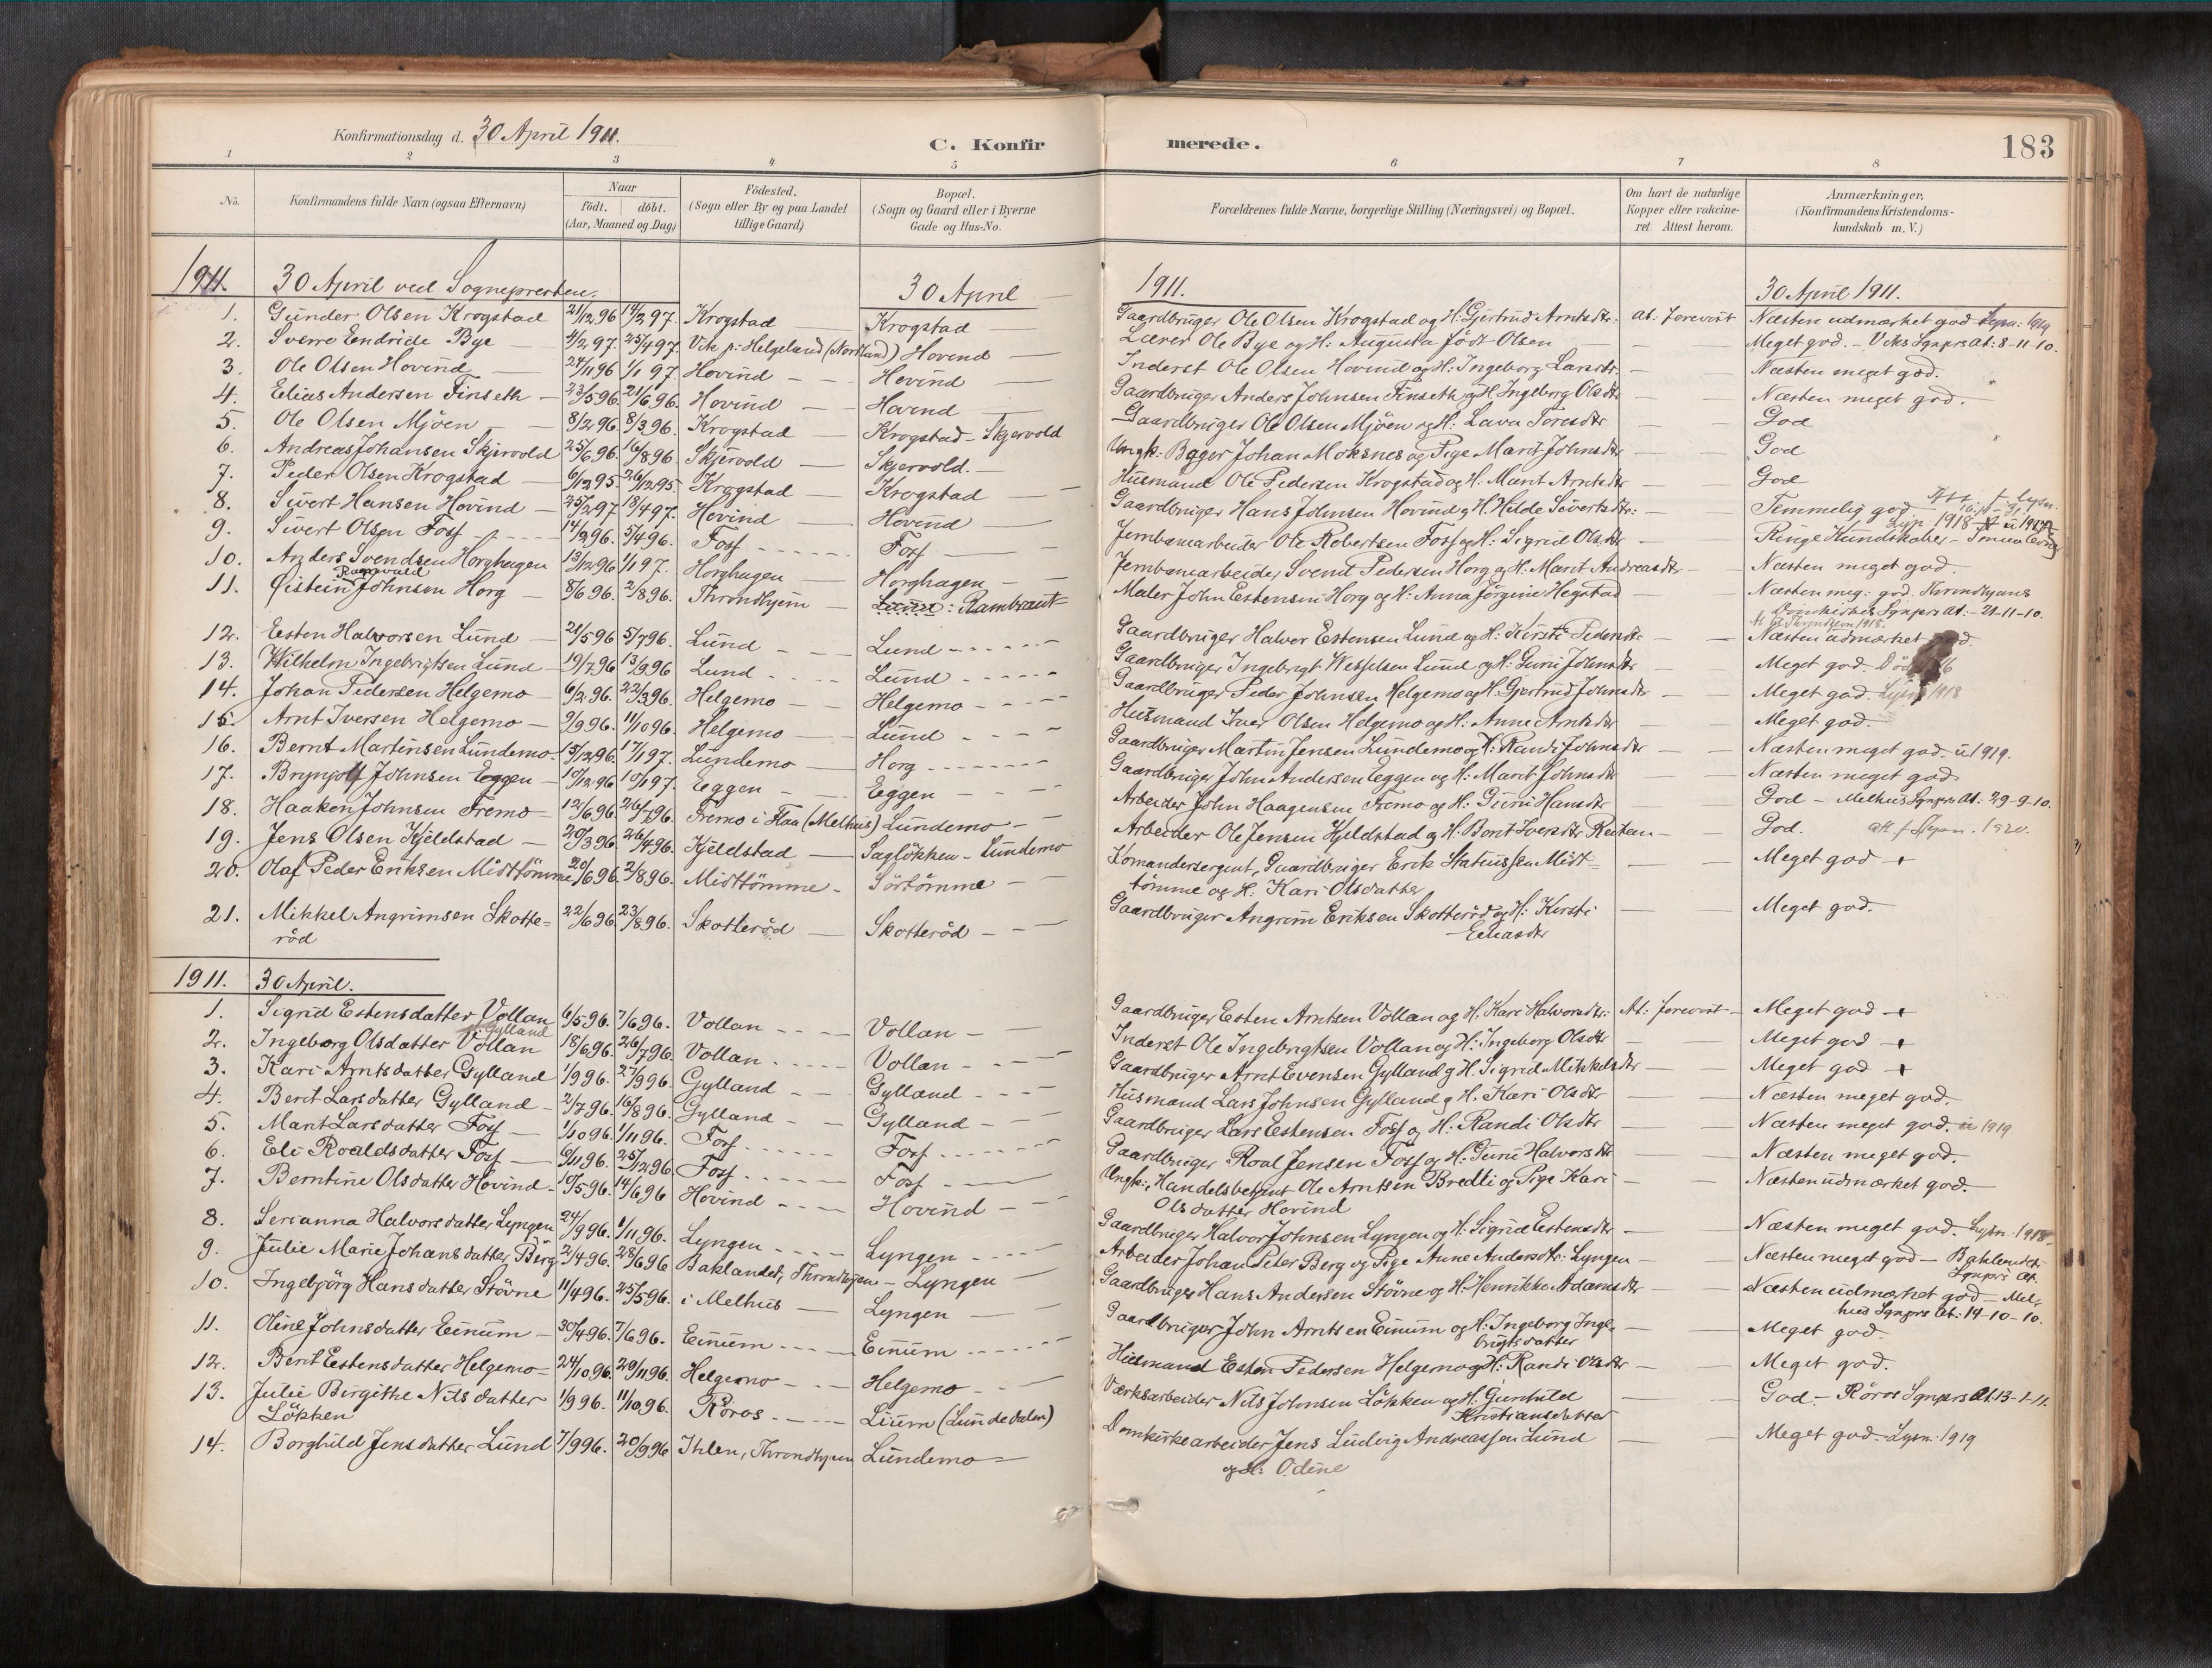 Konfirmationsdag d. 30 April 1911.
C. Konfirmerede.
183
1 2 3 4 5 6 7 8
No.
Konfirmandens fulde Navn (ogsaa Efternavn)
Naar
födt. döbt.
(Aar, Maaned og Dag)
Födested.
(Sogn eller By og paa Landet
tillige Gaard)
Bopæl.
(Sogn og Gaard eller i Byerne
Gade og Hus-No.
Forældrenes fulde Navne, borgerlige Stilling (Næringsvei) og Bopæl.
Om havt de naturlige
Kopper eller vakcine-
ret. Attest herom.
Anmærkninger,
(Konfirmandens Kristendoms-
kundskab m. V.)
1911. 30 April ved Sognepresten. 30 April 1911. 30 April 1911.
1. Gunder Olsen Krogstad 21/12 96 14/2 97. Krogstad Krogstad Gaardbruger Ole Olsen Krogstad og H: Gjertrud Arntsdtr: At: forevist Næsten udmærket god Lysn: 1919
2. Sverre Eendride Bye 4/2 97. 25/4 97. Vik p: Helgeland (Nordland) Hovind Lærer Ole Bye og H: Augusta född Olsen Meget god. - Viks Sgnprs At: 8-11-10.
3. Ole Olsen Hovind 24/11 96 1/1 97 Hovind Hovind Inderst Ole Olsen Hovind og H: Ingeborg Larsdtr. Næsten meget god.
4. Elias Andersen Finseth 23/5 96. 21/6 96. Hovind Hovind Gaardbruger Anders Johnsen Finseth og H. Ingeborg Olsdtr Næsten meget god.
5. Ole Olsen Mjöen 8/2 96. 8/3 96. Krogstad Krogstad - Skjervold Gaardbruger Ole Olsen Mjöen og H: Lava Toresdtr God
6. Andreas Johansen Skjervold 25/6 96. 16/8 96. Skjervold Skjervold. Ungk: Bager Johan Moksnes og Pige Marit Johnsdtr God
7. Peder Olsen Krogstad 6/12 95. 26/12 95. Krogstad Krogstad Husmand Ole Pedersen Krogstad og H. Marit Arntsdtr God
8. Sivert Hansen Hovind 25/2 97 18/4 97. Hovind Hovind Gaardbruger Hans Johnsen Hovind og H. Hilde Sivertsdtr: Temmelig god Att. f. Lysn.
9. Sivert Olsen Foss 14/2 96. 5/4 96. Foss Foss Jernbanearbeider Ole Robertsen Foss og H: Sigrid Olsdtr Ringe Kundskaber
10. Anders Svendsen Horghagen 13/12 96 1/1 97. Horghagen Horghagen Jernbanearbeider Svend Pedersen Horg og H: Marit Andreasdtr Næsten meget god
11. Øistein Ragnvald Johnsen Horg 8/6 96. 2/8 96. Throndhjem Lunn: Rambraut Maler John Estensen Horg og H: Anna Jörgine Hegstad Næsten meg: god. Throndhjems
Domkirkes Sgnprs At: - 21-11-10.
12. Eesten Halvorsen Lund 21/5 96 5/7 96. Lund Lund Gaardbruger Halvor Eestensen Lund og H: Kirsti Pedersdtr Næsten udmærket god.
13. Wilhelm Ingebrigtsen Lund 19/7 96 13/9 96 Lund Lund Gaardbruger Ingebrigt Wesselsen Lund og H: Guru Johnsdtr Meget god.
14. Johan Pedersen Helgemo 6/2 96. 22/3 96. Helgemo Helgemo Gaardbruger Peder Johnsen Helgemo og H: Gjertrud Johnsdtr Meget god. Lysn 1918
15. Arnt Iversen Helgemo 9/9 96. 11/10 96. Helgemo Lund Husmand Iver Olsen Helgemo og H: Anne Arntsdtr Meget god.
16. Bernt Martinsen Lundemo 15/12 96. 17/1 97. Lundemo Horg Gaardbruger Martin Jensen Lundemo og H: Randi Johnsdtr Næsten meget god. u 1919.
17. Brynjolf Johnsen Eggen 10/12 96 10/1 97. Eggen Eggen Gaardbruger John Andersen Eggen og H: Marit Johnsdtr Næsten meget god
18. Haakon Johnsen Fremo 12/6 96. 26/7 96. Fremo i Flaa (Melhus) Lundemo Arbeider John Haagensen Fremo og H: Guru Hansdtr God - Melhus Sgnprs At: 29-9-10.
19. Jens Olsen Kjeldstad 29/3 96. 26/4 96. Kjeldstad Saglökken - Lundemo Arbeider Ole Jensen Kjeldstad og H. Berit Iversdtr Restan God. att. f. Lysn. 1920.
20. Olaf Peder Eriksen Midttömme 20/6 96. 2/8 96. Midttömme Sörtömme Komandersergent, Gaardbruger Erik Statiussen Midt-
tömme og H. Kari Olsdatter Meget god +
21. Mikkel Angrimsen Skotte-
röd 22/6 96 23/8 96. Skotteröd Skotteröd Gaardbruger Angrim Eriksen Skotteröd og H: Kirsti
Eliasdtr Meget god.
1911. 30 April.
1. Sigrid Estensdatter Vollan 6/5 96. 7/6 96. Vollan Vollan Gaardbruger Esten Arntsen Vollan og H. Kari Halvorsdtr: At: forevist Meget god +
2. Ingeborg Olsdatter Vollan Gylland 18/6 96. 26/7 96. Vollan Vollan Inderst Ole Ingebrigtsen Vollan og H: Ingeborg Olsdtr Meget god +
3. Kari Arntsdatter Gylland 1/9 96. 27/9 96. Gylland Gylland Gaardbruger Arnt Evensen Gylland og H. Sigrid Mikkelsdtr Meget god +
4. Berit Larsdatter Gylland 2/7 96. 16/8 96. Gylland Gylland Husmand Lars Johnsen Gylland og H. Kari Olsdtr Næsten meget god.
5. Marit Larsdatter Foss 1/10 96. 1/11 96. Foss Foss Gaardbruger Lars Estensen Foss og H: Randi Olsdtr Næsten meget god. u 1919
6. Eli Roaldsdatter Foss 6/11 96. 25/12 96 Foss Foss Gaardbruger Roal Jensen Foss og H: Guru Halvorsdtr Næsten meget god.
7. Berntine Olsdatter Hovind 10/5 96. 14/6 96 Hovind Hovind Ungk:, Handelsbetjent Ole Arntsen Bredli og Pige Kari
Olsdatter Hovind Næsten udmærket god.
8. Serianna Halvorsdatter Lyngen 24/9 96. 1/11 96. Lyngen Lyngen Gaardbruger Halvor Johnsen Lyngen og H: Sigrid Eestensdtr Næsten meget god. Lysn. 1918
9. Julie Marie Johansdatter Berg 2/4 96. 28/6 96 Baklandet, Throndhjem Lyngen Arbeider Johan Peter Berg og Pige Anne Andersdtr: Lyngen Næsten meget god - Baklandets
Sgnprs At.
10. Ingebjörg Hansdatter Stövne 11/4 96. 25/5 96. i Melhus Lyngen Gaardbruger Hans Andersen Stövne og H: Henrikke Adamsdtr Næsten udmærket god - Mel-
hus Sgnprs At: 14-10-10.
11. Oline Johnsdatter Einum 30/4 96. 7/6 96. Einum Einum Gaardbruger John Arntsen Einum og H: Ingeborg Inge-
brigtsdatter Meget god.
12. Berit Eestensdatter Helgemo 24/10 96. 29/11 96. Helgemo Helgemo Husmand Esten Pedersen Helgemo og H: Randi Olsdtr Meget god.
13. Julie Birgithe Nilsdatter
Lökken 1/9 96. 11/10 96. Röros Lium (Lundedalen) Værksarbeider Nils Johnsen Lökken og H. Gunhild
Kristiansdatter God. - Röros Sgnprs At. 13-1-11.
14. Borghild Jensdatter Lund 7/9 96. 20/9 96 Ihlen, Throndhjem Lundemo Domkirkearbeider Jens Ludvig Andreassen Lund
og H: Odine Meget god. Lysn. 1919